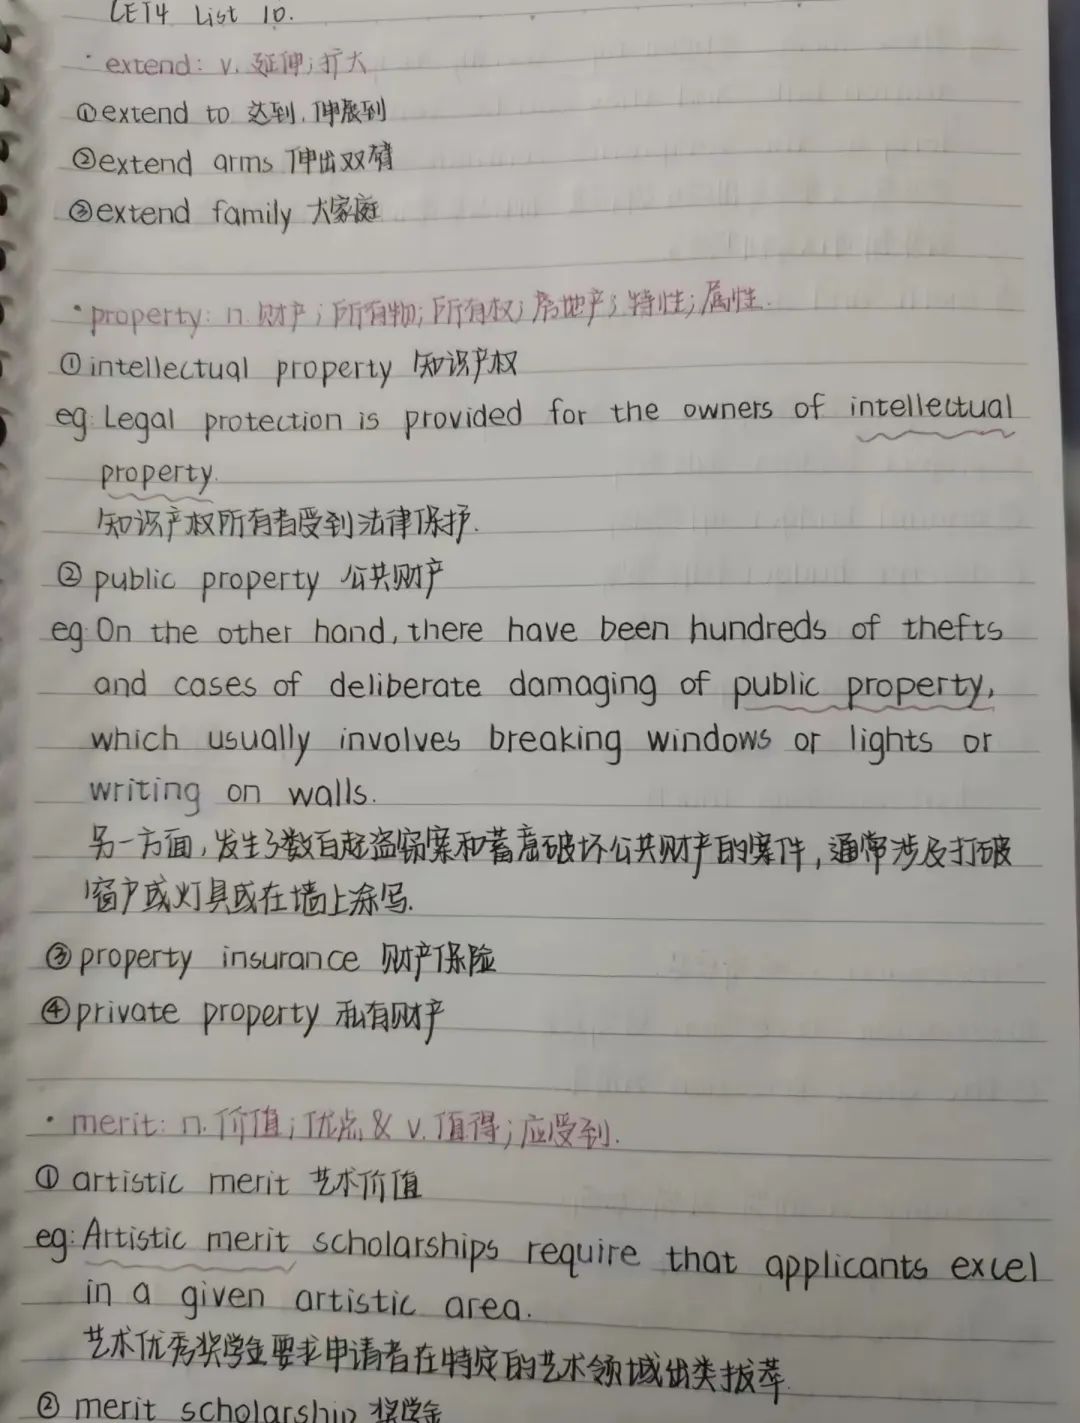 CET4 List 10.
· extend: v. 延伸;扩大
①extend to 达到,伸展到
②extend arms 伸出双臂
③extend family 大家庭
· property: n. 财产;所有物;所有权;房地产;特性;属性.
①intellectual property 知识产权
eg: Legal protection is provided for the owners of intellectual
property.
知识产权所有者受到法律保护.
② public property 公共财产
eg: On the other hand, there have been hundreds of thefts
and cases of deliberate damaging of public property,
which usually involves breaking windows or lights or
writing on walls.
另一方面,发生了数百起盗窃案和蓄意破坏公共财产的案件,通常涉及打破
窗户或灯具或在墙上涂写.
③property insurance 财产保险
④private property 私有财产
· merit: n. 价值;优点 & v. 值得;应受到.
① artistic merit 艺术价值
eg: Artistic merit scholarships require that applicants excel
in a given artistic area.
艺术优秀奖学金要求申请者在特定的艺术领域出类拔萃.
② merit scholarship 奖学金